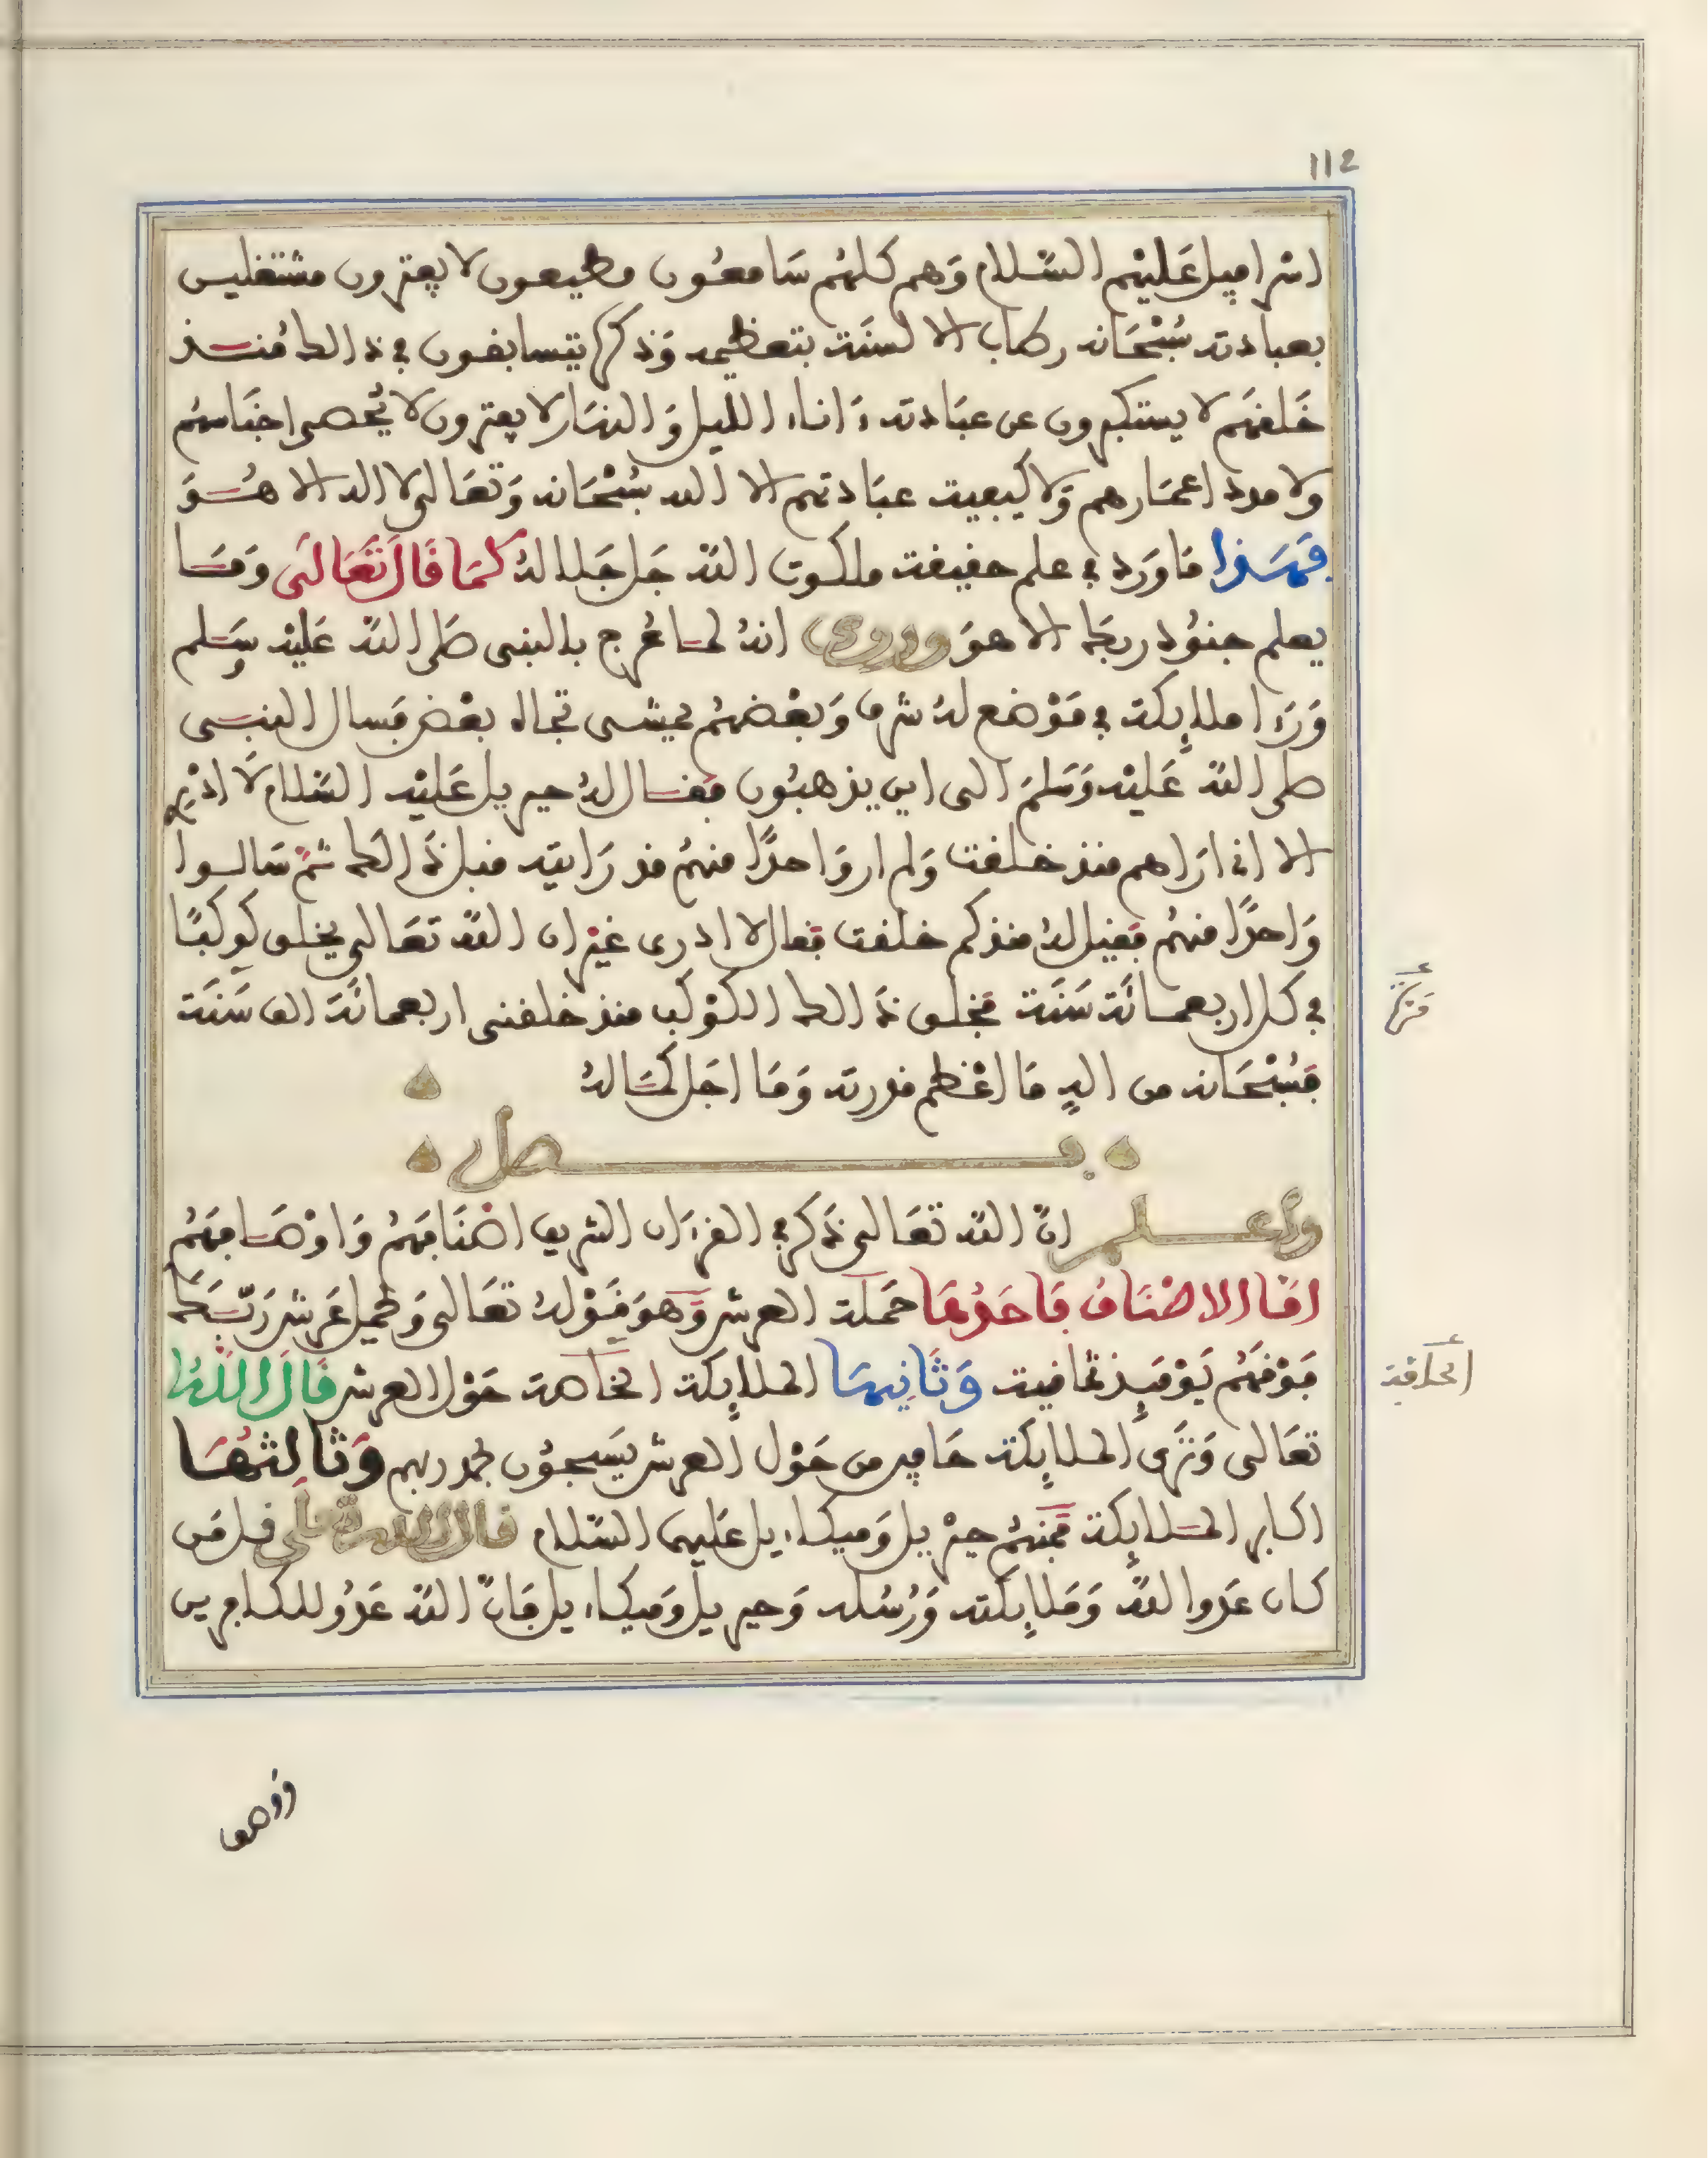 112
اسرافيل عَليْهم السَّلام وَهم كلهُم سَامعُون مطيعون لا يفترون مشتغلين
بعبادته سُبْحَانه رطاب الالسنَة بتعظيمه وَذكره يتسابقون في ذالك مُنذ
خَلقهَم لا يستكبرون عن عبَادته ءَاناء الليل وَالنهَار لا يفترون لا يُحصى اجنَاسهُم
ولا مدد اعمَارهم وَلا كيفية عبَادتهم الا الله سُبْحَانه وَتعَالى لا اله الا هُوَ
فَهَذا مَا وَرَد في علم حقيقة ملكوت الله جَل جَلاله كمَا قَالَ تَعَالَى وَمَا
يعلم جنوُد ربكَ الا هوَ وروى انهُ لما عُرج بالنبى صَلى الله عَليْه وسَلم
وَرَءا ملايكة في مَوْضع لهُ شرف وَبعْضهُم يمْشى تجاه بعْض فسال النبى
صلى الله عَليْه وَسَلمَ الى اين يذهبُون فقال لهُ جبريل عَليْه السَّلام لَا ادْرِى
الا انى ارَاهم منذ خلقت وَلم ار وَاحدًا منهُم قد رَايته قبل ذَالك ثمَّ سَالوا
وَاحدًا منهُم فقيل لهُ منذ كم خلقت فقال لا ادرى غيْر ان الله تعَالى يخلق كوكبًا
في كل اربعمائَة سَنَة فخلق ذَالك الكوْكب منذ خلقنى اربعمائَة الف سَنَة
مَرة
فَسُبْحَانه من الهٍ مَا اعْظم قدرته وَمَا اجَل كمَالهُ
فصل
واعلم انّ الله تعَالى ذَكر في القرءَان الشريف اصْنَافهُم وَاوْصَافهُم
امَّا الاصْنَافُ فَاحَدُهَا حَملَة العرش وَهوَ قَوْلهُ تعَالى وَيحْمل عَرشَ رَبّكَ
فَوْقهُم يَوْمَئِذ ثمَانية وَثَانِيهَا الملايكة الخاصة حَوْل العرش قَالَ اللَّهُ
الحَافِة
تعَالى وَتَرى الملايكة حَافين من حَوْل العرش يُسَبحوُن بحمد ربهم وَثَالثُهَا
اكابر الملايكة فمنهُم جبْريل وَميكاءيل عَليهما السَّلام قال الله تعَلى قل مَن
كان عَدوا لله وَمَلايكته وَرُسُله وَجبريل وَميكاءيل فَانّ الله عَدُوٌّ للكافرين